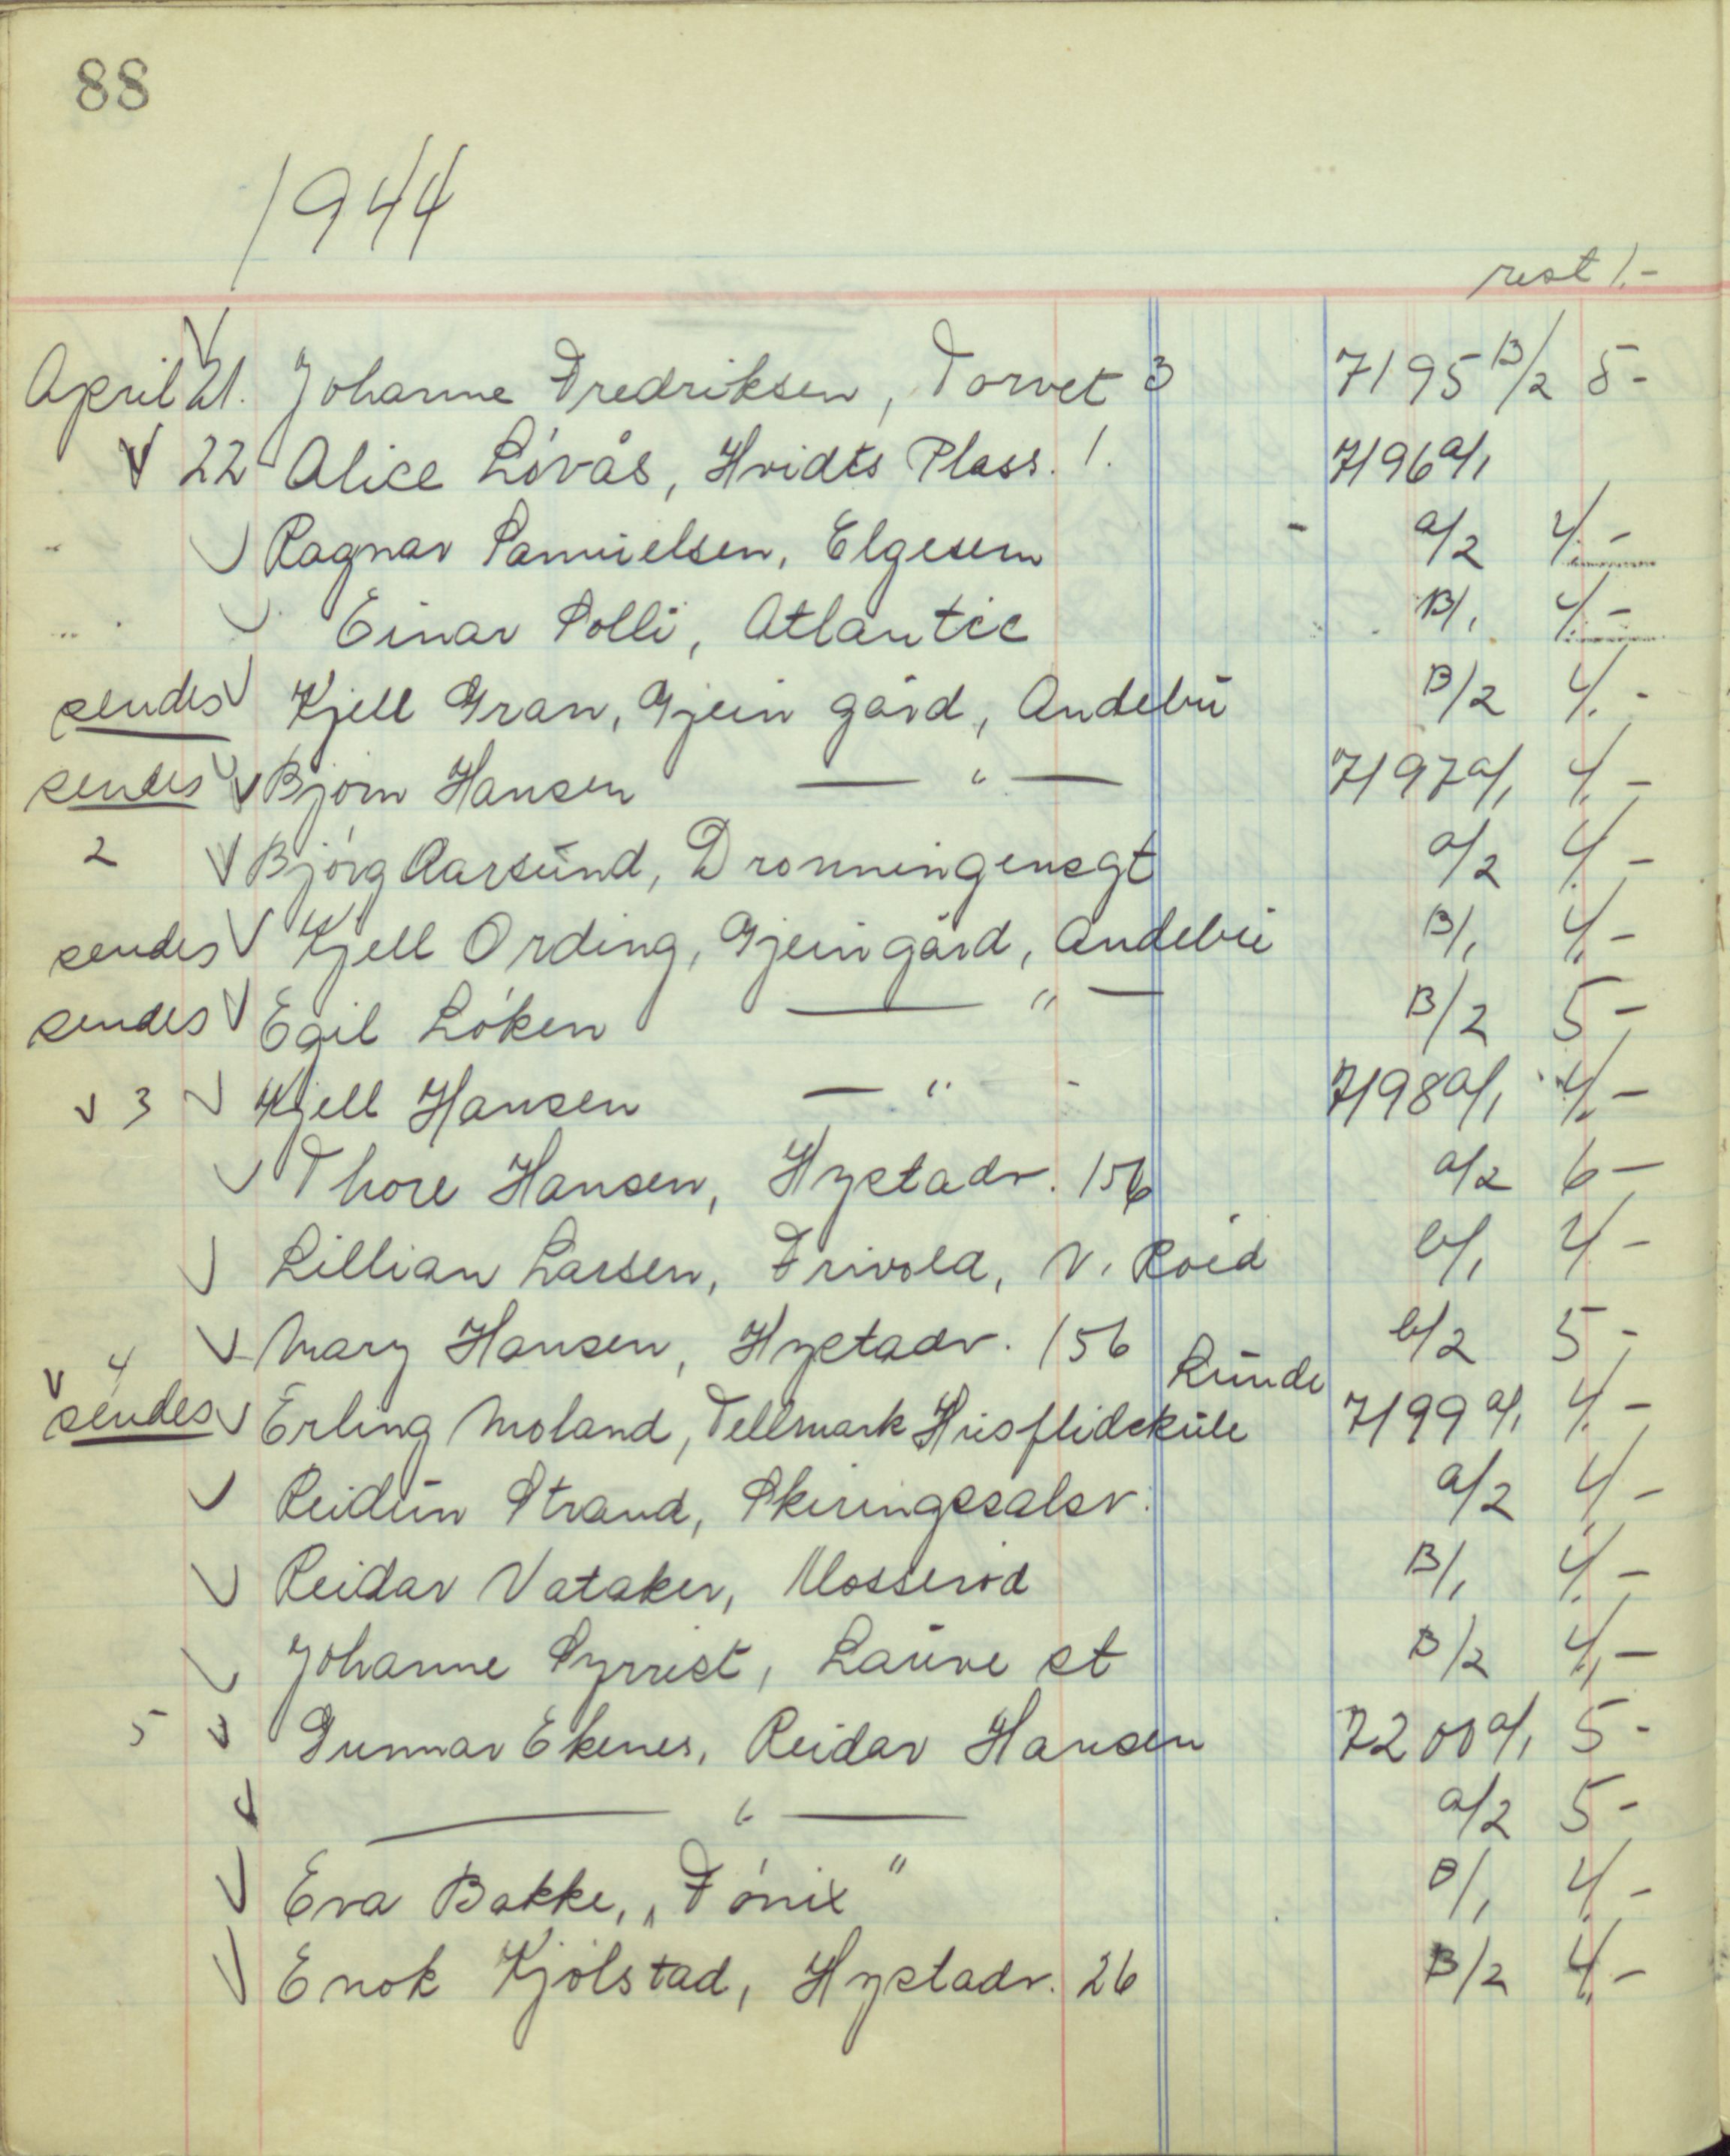 88
1944
rest 1.-
April 21. Johanne Fredriksen, Torvet 3 7195 B/2 5-
22 Alice Lövås, Hvidts Plass. 1. 7196 a/1
Ragnar Samuelsen, Elgesem a/2 4.-
Einar Solli, Atlantic B/1 4.-
sendes Kjell Gran, Gjein gård, Andebu B/2 4.-
sendes Bjørn Hansen — " — 7197 a/1 4.-
2 Bjórg Aarsund, Dronningensgt a/2 4.-
sendes Kjell Ording, Gjein gård, Andebu B/1 4.-
sendes Egil Lóken — " — B/2 5-
3 Kjell Hansen — " - 7198 a/1 4.-
Thore Hansen, Hystadv. 156 a/2 6-
Lillian Larsen, Frivold, N. Róed b/1 4-
Mary Hansen, Hystadv. 156 b/2 5-
4 Lunde
sendes Erling Moland, Tellmark Husflidskule 7199 a/1 4.-
Reidun Strand, Skiringssalsv. a/2 4-
Reidar Vataker, Mosseród B/1 4.-
Johanne Syrrist, Lauve st B/2 4,-
5 Gunnar Ekenes, Reidar Hansen 7200 a/1 5-
— " — a/2 5-
Eva Bakke, „Fónix" B/1 4-
Enok Kjólstad, Hystadv. 26 B/2 4.-